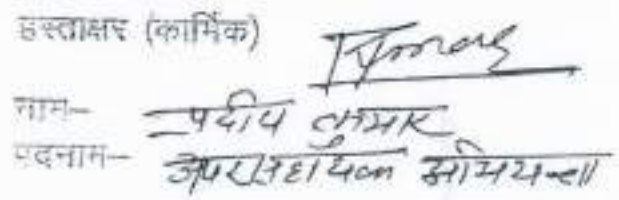 हस्ताक्षर (कार्मिक)
नाम- प्रदीप कुमार
पदनाम- अपर सहायक अभियन्ता